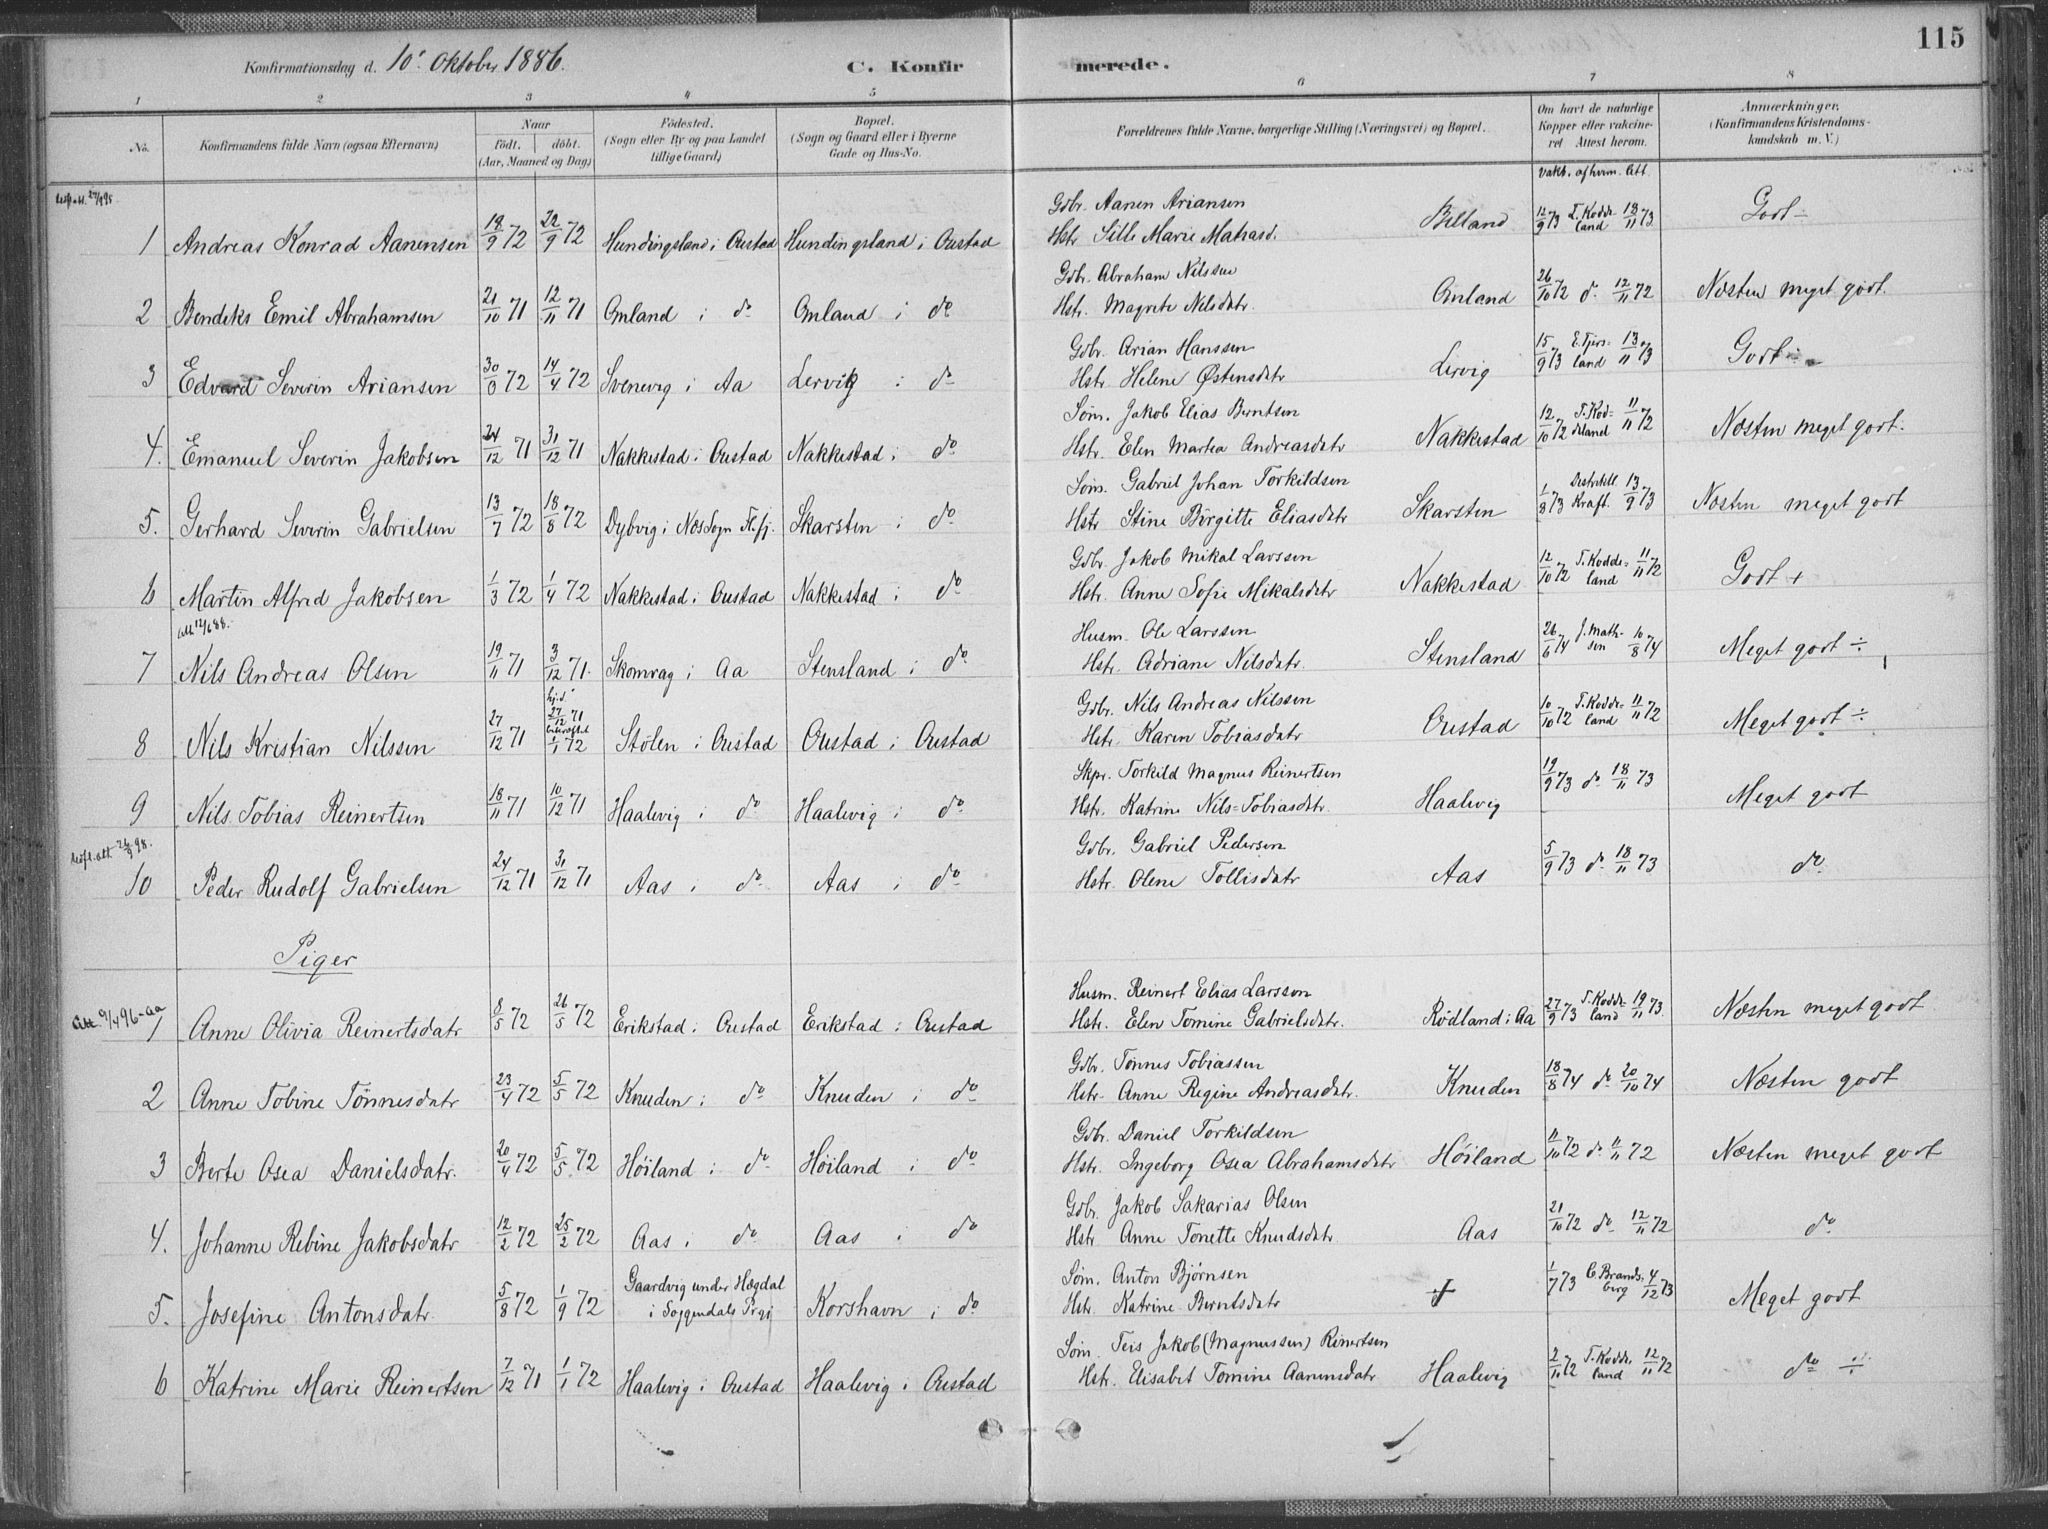 115
Konfirmationsdag d. 10' Oktober 1886. C. Konfirmerede.
1 2 3 4 5 6 7 8
No. Konfirmandens fulde Navn (ogsaa Efternavn) Naar født. døbt. (Aar, Maaned og Dag) Fødested. (Sogn eller By og paa Landet tillige Gaard) Bopæl. (Sogn og Gaard eller i Byerne Gade og Hus-No. Forældrenes fulde Navne, borgerlige Stilling (Næringsvei) og Bopæl. Om havt de naturlige Kopper eller vakcineret Attest herom. Anmærkninger, (Konfirmandens Kristendomskundskab m. V.)
vakc. af hvem. Att.
1 Andreas Konrad Aanensen 18/9 72 22/9 72 Hundingsland i Oustad Hundingsland i Oustad Gdbr. Aanen Ariansen Hstr Sille Marie Matiasd. Belland 12/9 73 T. Koddeland 18/11 73 Godt ÷
2 Bendiks Emil Abrahamsen 21/10 71 12/11 71 Omland i do Omland i do Gdbr. Abraham Nilssen Hstr. Magrete Nilsdatr. Omland 26/10 72 do 12/11 72 Næsten meget godt.
3 Edvard Severin Ariansen 30/ 72 14/4 72 Svenevig i Aa Lervig i do Gdbr. Arian Hanssen Hstr. Helene Østensdatr Lervig 15/9 73 E. Fjersland 13/11 73 Godt ÷
4. Emanuel Severin Jakobsen 24/12 71 31/12 71 Nakkestad i Oustad Nakkestad i do Søm. Jakob Elias Berntsen Hstr. Elen Martea Andreasdatr Nakkestad 12/10 72 T. Koddeland 11/11 72 Næsten meget godt.
5. Gerhard Severin Gabrielsen 13/7 72 18/8 72 Dybvig i Næs Sogn Fl.fj. Skarsten i do Søm. Gabriel Johan Torkildsen Hstr Stine Birgitte Eliasdatr Skarsten 1/8 73 Distriktl. Kraft. 13/9 73 Næsten meget godt
6 Martin Alfred Jakobsen 1/3 72 1/4 72 Nakkestad i Oustad Nakkestad i do Gdbr. Jakob Mikal Larssen Hstr. Anne Sofie Mikalsdatr Nakkestad 12/10 72 T. Koddeland 11/11 72 Godt +
Att 12/6 88.
7 Nils Andreas Olsen 19/11 71 3/12 71. Skomrag i Aa Stensland i do Husm. Ole Larssen Hstr. Adriane Nilsdatr. Stensland 26/6 74 J. Mathsen 10/8 74 Meget godt ÷
8 Nils Kristian Nilssen 27/12 71 hj.d. 27/12 71 1/1 72 Stølen i Oustad Oustad i Oustad Gdbr. Nils Andreas Nilssen Hstr. Karen Tobiasdatr Oustad 10/10 72 T. Koddeland 11/11 72 Meget godt ÷
9 Nils Tobias Reinertsen 18/11 71 10/12 71 Haalevig i do Haalevig i do Skpr. Torkild Magnus Reinertsen Hstr. Katrine Nils=Tobiasdatr. Haalevig 19/9 73 do 18/11 73 Meget godt
10 Peder Rudolf Gabrielsen 24/12 71 31/12 71 Aas i do Aas i do Gdbr. Gabriel Pedersen Hstr. Olene Tollisdatr Aas 5/9 73 do 18/11 73 do
Piger
1 Anne Olivia Reinertsdatr 8/5 72 26/5 72 Erikstad i Oustad Erikstad i Oustad Husm. Reinert Elias Larsson Hstr. Elen Tomine Gabrielsdatr. Rødland i Aa 27/9 73 T. Koddeland 19/11 73. Næsten meget godt
2 Anne Tobine Tønnesdatr 23/4 72 5/5 72 Knuden i do Knuden i do Gdbr. Tønnes Tobiassen Hstr. Anne Regine Andreasdatr. Knuden 18/8 74 do 20/10 74 Næsten godt
3 Berte Osea Danielsdatr. 20/4 72 5/5. 72 Høiland i do Høiland i do Gdbr. Daniel Torkildsen Hstr. Ingeborg Osea Abrahamsdatr Høiland 11/10 72 do 11/11 72 Næsten meget godt
4. Johanne Rebine Jakobsdatr 12/2 72 25/2 72 Aas i do Aas i do Gdbr. Jakob Sakarias Olsen Hstr Anne Tonette Knudsdatr. Aas 21/10 72 do 12/11 72 do
5. Josefine Antonsdatr. 5/8 72 1/9 72 Gaardvig under Hægdal i Soggendals Prgj Korshavn i do Søm. Anton Bjørnsen Hstr. Katrine Berntsdatr 1/7 73 C. Brandsberg 4/12 73 Meget godt
6 Katrine Marie Reinertsen 7/12 71 1/1 72 Haalevig i Oustad Haalevig i Oustad Søm. Teis Jakob (Magnussen) Reinertsen Hstr. Elisabet Tomine Aanensdatr Haalevig 2/11 72 T. Koddeland 12/11 72 do ÷